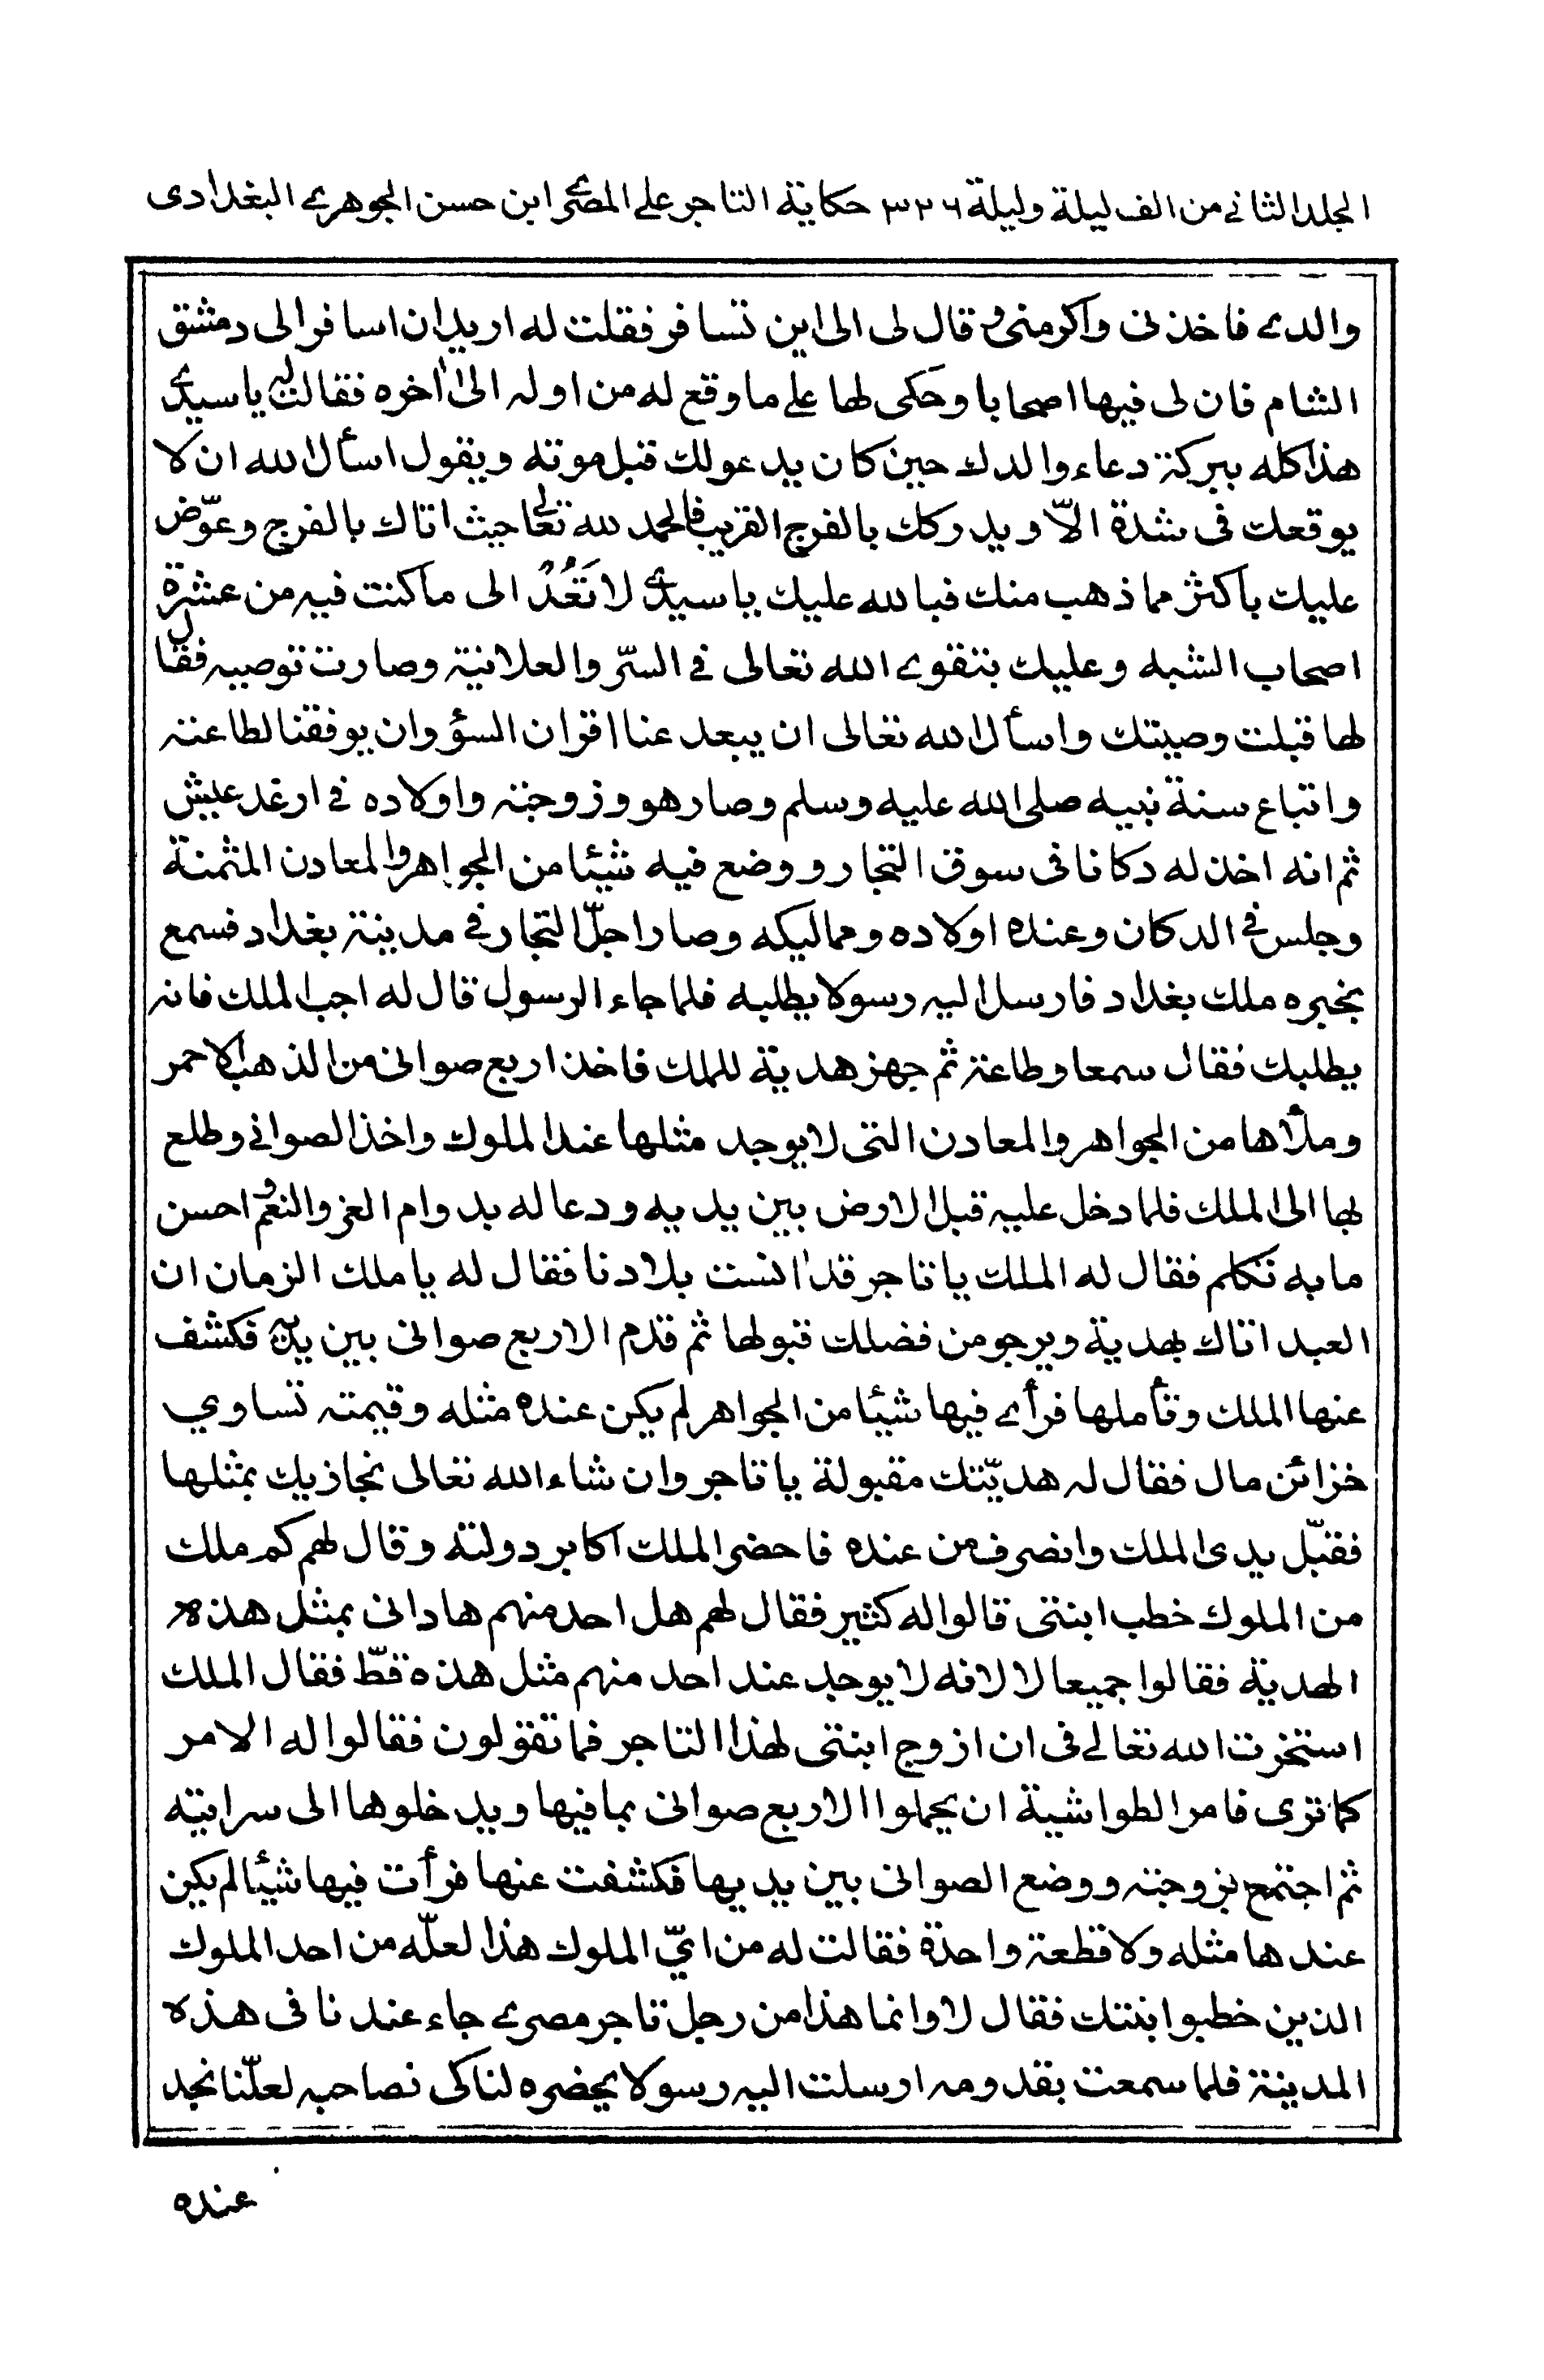 المجلد الثانى من الف ليلة وليلة ٣٢٦ حكاية التاجر على المصرى ابن حسن الجوهرى البغدادى
والدى فاخذنى واكرمنى وقال لى الى اين تسافر فقلت له اريد ان اسافر الى دمشق
الشام فان لى فيها اصحابا وحكى لها على ما وقع له من اوله الى اٰخره فقالت له يا سيدى
هذا كله ببركة دعاء والدك حين كان يدعو لك قبل موته ويقول اسأل الله ان لا
يوقعك فى شدة الّا ويدركك بالفرج القريب فالحمد لله تعالى حيث اتاك بالفرج وعوّض
عليك بأكثر مما ذهب منك فبالله عليك يا سيدى لا تَعُدْ الى ما كنت فيه من عشرة
اصحاب الشبه وعليك بتقوى الله تعالى فى السّر والعلانية وصارت توصيه فقال
لها قبلت وصيتك واسأل الله تعالى ان يبعد عنا اقران السؤ وان يوفقنا لطاعته
واتباع سنة نبيه صلى الله عليه وسلم وصار هو وزوجته واولاده فى ارغد عيش
ثم انه اخذ له دكانا فى سوق التجار ووضع فيه شيئا من الجواهر والمعادن المثمنة
وجلس فى الدكان وعنده اولاده ومماليكه وصار اجلّ التجار فى مدينة بغداد فسمع
بخبره ملك بغداد فارسل اليه رسولا يطلبه فلما جاء الرسول قال له اجب الملك فانه
يطلبك فقال سمعا وطاعة ثم جهز هدية للملك فاخذ اربع صوانى من الذهب الاحمر
وملأها من الجواهر والمعادن التى لا يوجد مثلها عند الملوك واخذ الصوانى وطلع
بها الى الملك فلما دخل عليه قبل الارض بين يديه ودعا له بدوام العز والنعم واحسن
ما به تكلم فقال له الملك يا تاجر قد اٰنست بلادنا فقال له يا ملك الزمان ان
العبد اتاك بهدية ويرجو من فضلك قبولها ثم قدم الاربع صوانى بين يديه فكشف
عنها الملك وتأملها فرأى فيها شيئا من الجواهر لم يكن عنده مثله وقيمته تساوي
خزائن مال فقال له هديّتك مقبولة يا تاجر وان شاء الله تعالى نجازيك بمثلها
فقبّل يدى الملك وانصرف من عنده فاحضر الملك اكابر دولته وقال لهم كم ملك
من الملوك خطب ابنتى قالوا له كثير فقال لهم هل احد منهم هادانى بمثل هذه
الهدية فقالوا جميعا لا لانه لا يوجد عند احد منهم مثل هذه قطّ فقال الملك
استخرت الله تعالى فى ان ازوج ابنتى لهذا التاجر فما تقولون فقالوا له الامر
كما ترى فامر الطواشية ان يحملوا الاربع صوانى بما فيها ويدخلوها الى سرايته
ثم اجتمع بزوجته ووضع الصوانى بين يديها فكشفت عنها فرأت فيها شيئا لم يكن
عندها مثله ولا قطعة واحدة فقالت له من ايّ الملوك هذا لعلّه من احد الملوك
الذين خطبوا بنتك فقال لا وانما هذا من رجل تاجر مصرى جاء عندنا فى هذه
المدينة فلما سمعت بقدومه ارسلت اليه رسولا يحضره لنا كى نصاحبه لعلّنا نجد
عنده